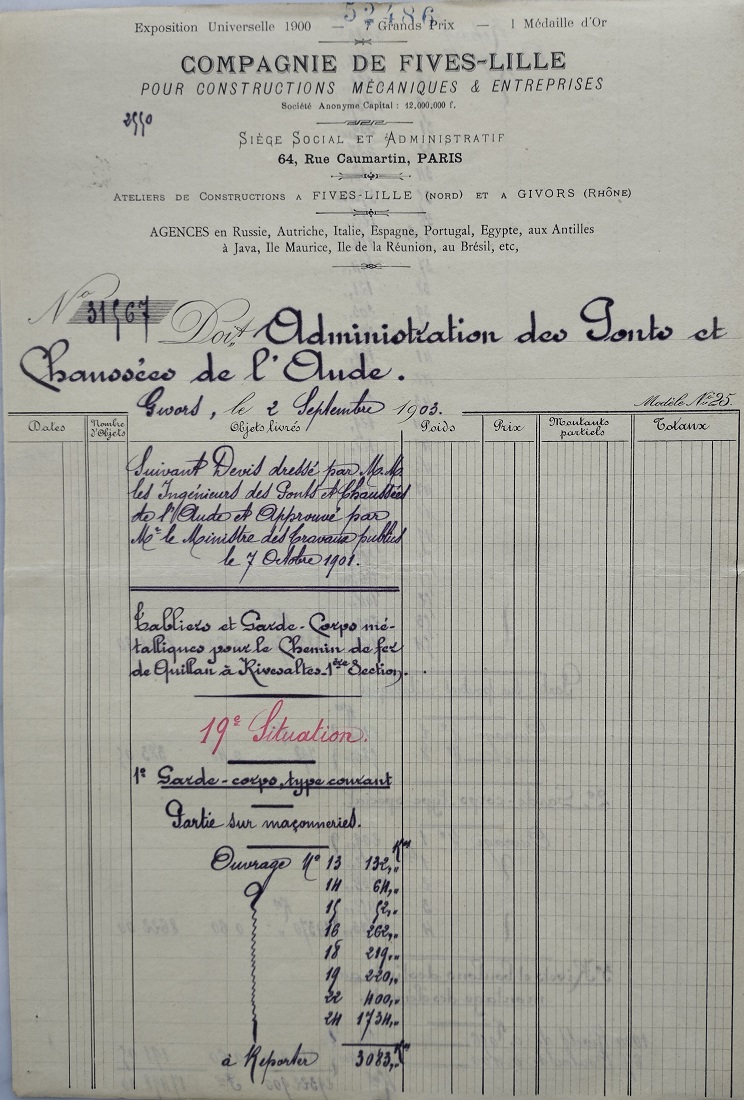 52486
Exposition Universelle 1900 — 7 Grands Prix — 1 Médaille d'Or
COMPAGNIE DE FIVES-LILLE
POUR CONSTRUCTIONS MÉCANIQUES & ENTREPRISES
Société Anonyme Capital : 12,000,000 f.
2550
SIÈGE SOCIAL ET ADMINISTRATIF
64, Rue Caumartin, PARIS
ATELIERS DE CONSTRUCTIONS A FIVES-LILLE (NORD) ET A GIVORS (RHÔNE)
AGENCES en Russie, Autriche, Italie, Espagne, Portugal, Egypte, aux Antilles
à Java, Ile Maurice, Ile de la Réunion, au Brésil, etc,
No 31567 Doit Administration des Ponts et
Chaussées de l'Aude.
Givors, le 2 Septembre 1903.
Modèle No 25.
Dates Nombre d'Objets Objets livrés Poids Prix Montants partiels Totaux
Suivant Devis dressé par M.M.
les Ingénieurs des Ponts et Chaussées
de l'Aude et Approuvé par
Mr le Ministre des Travaux publics
le 7 Octobre 1901.
Tabliers et Garde-Corps mé-
talliques pour le Chemin de fer
de Quillan à Rivesaltes 1ère Section.
19e Situation.
1o Garde-corps, type courant
Partie sur maçonneries.
Kos
Ouvrage No 13 132,"
14 64,"
15 52,"
16 262,"
18 219,"
19 220,"
22 400,"
24 1734,"
à Reporter 3083,"Kos